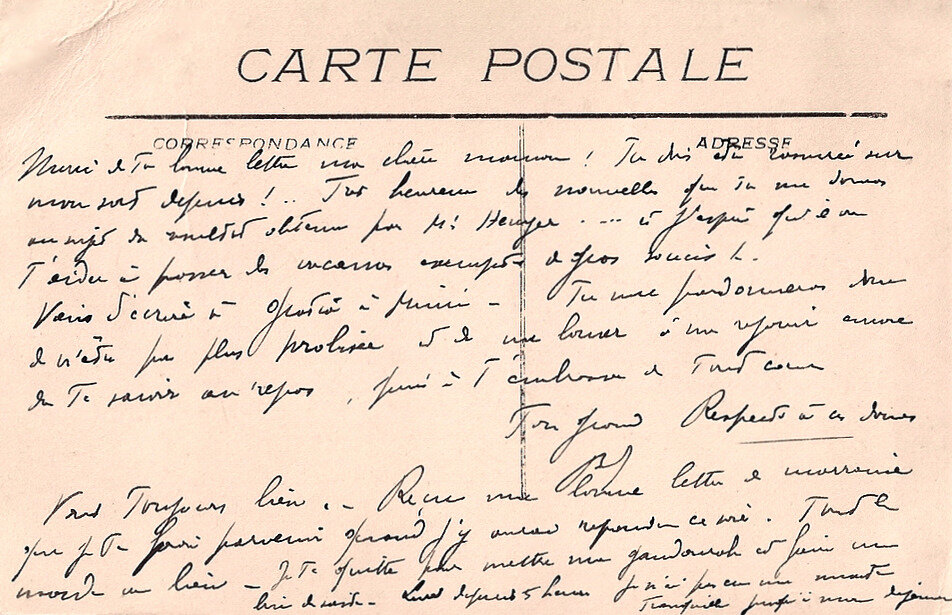 CARTE POSTALE
CORRESPONDANCE
ADRESSE
Merci de Ta bonne lettre ma chère maman ! Tu dis être rassurée sur
mon sort depuis ! .. Très heureux des nouvelles que tu me donnes
au sujet du résultat obtenu par Mr ... et j'espère qu'on
T'aidera à passer des vacances exemptes de gros soucis !.
Viens d'écrire à à Mimi - Tu me pardonneras donc
de n'être pas plus prolixe et de me borner à me réjouir encore
de Te savoir au repos, puis à T'embrasser de Tout cœur
Ton grand
Respects à ces dames
Vais Toujours bien. - Reçu une bonne lettre de marraine
que je Te ferai parvenir quand j'y aurai répondu ce soir. Tout le
monde va bien - Je Te quitte pour mettre ma et faire un
brin de - Levé depuis 5 heures je n'ai pas eu une minute
Tranquille jusqu'à mon déjeuner